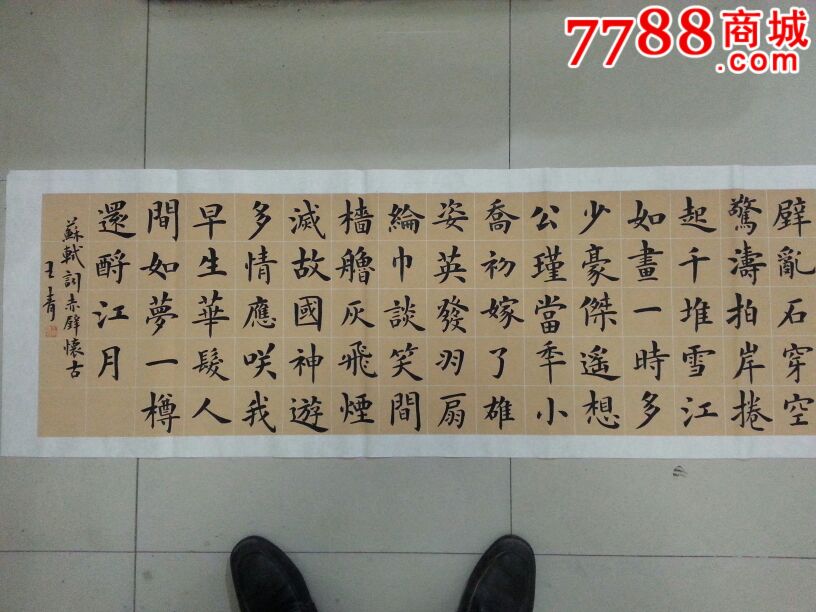 7788商城
.com
壁亂石穿空
驚濤拍岸捲
起千堆雪江
如畫一時多
少豪傑遙想
公瑾當年小
喬初嫁了雄
姿英發羽扇
綸巾談笑間
檣艣灰飛煙
滅故國神遊
多情應咲我
早生華髮人
間如夢一樽
還酹江月
蘇軾詞赤壁懷古
王青